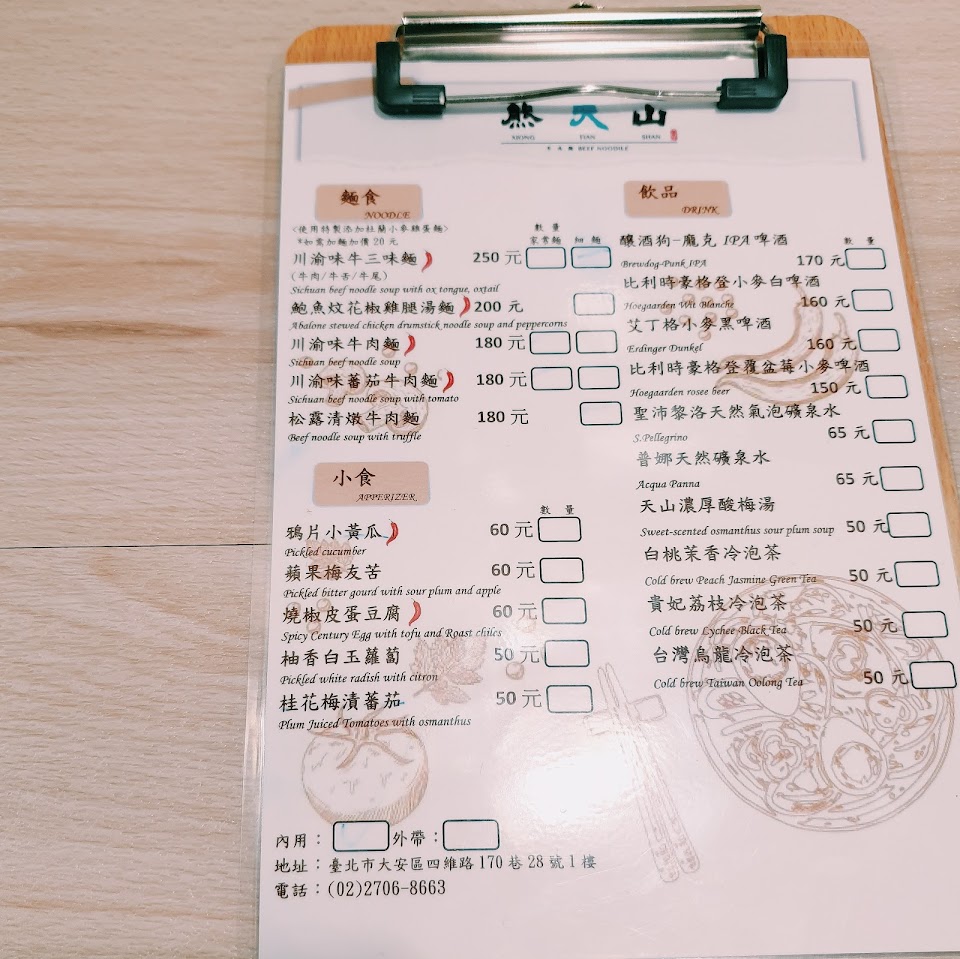 熊天山
XIONG TIAN SHAN
牛肉麵 BEEF NOODLE
麵食
NOODLE
<使用特製添加杜蘭小麥雞蛋麵>
*如需加麵加價 20 元
數 量
家常麵 細麵
川渝味牛三味麵 250 元
(牛肉/牛舌/牛尾)
Sichuan beef noodle soup with ox tongue, oxtail
鮑魚炆花椒雞腿湯麵 200 元
Abalone stewed chicken drumstick noodle soup and peppercorns
川渝味牛肉麵 180 元
Sichuan beef noodle soup
川渝味蕃茄牛肉麵 180 元
Sichuan beef noodle soup with tomato
松露清燉牛肉麵 180 元
Beef noodle soup with truffle
小食
APPERIZER
數 量
鴉片小黃瓜 60 元
Pickled cucumber
蘋果梅友苦 60 元
Pickled bitter gourd with sour plum and apple
燒椒皮蛋豆腐 60 元
Spicy Century Egg with tofu and Roast chiles
柚香白玉蘿蔔 50 元
Pickled white radish with citron
桂花梅漬蕃茄 50 元
Plum Juiced Tomatoes with osmanthus
飲品
DRINK
數 量
釀酒狗-龐克 IPA 啤酒
Brewdog-Punk IPA 170 元
比利時豪格登小麥白啤酒
Hoegaarden Wit Blanche 160 元
艾丁格小麥黑啤酒
Erdinger Dunkel 160 元
比利時豪格登覆盆莓小麥啤酒
Hoegaarden rosee beer 150 元
聖沛黎洛天然氣泡礦泉水
S.Pellegrino 65 元
普娜天然礦泉水
Acqua Panna 65 元
天山濃厚酸梅湯
Sweet-scented osmanthus sour plum soup 50 元
白桃茉香冷泡茶
Cold brew Peach Jasmine Green Tea 50 元
貴妃荔枝冷泡茶
Cold brew Lychee Black Tea 50 元
台灣烏龍冷泡茶
Cold brew Taiwan Oolong Tea 50 元
內用： 外帶：
地址：臺北市大安區四維路 170 巷 28 號 1 樓
電話：(02)2706-8663